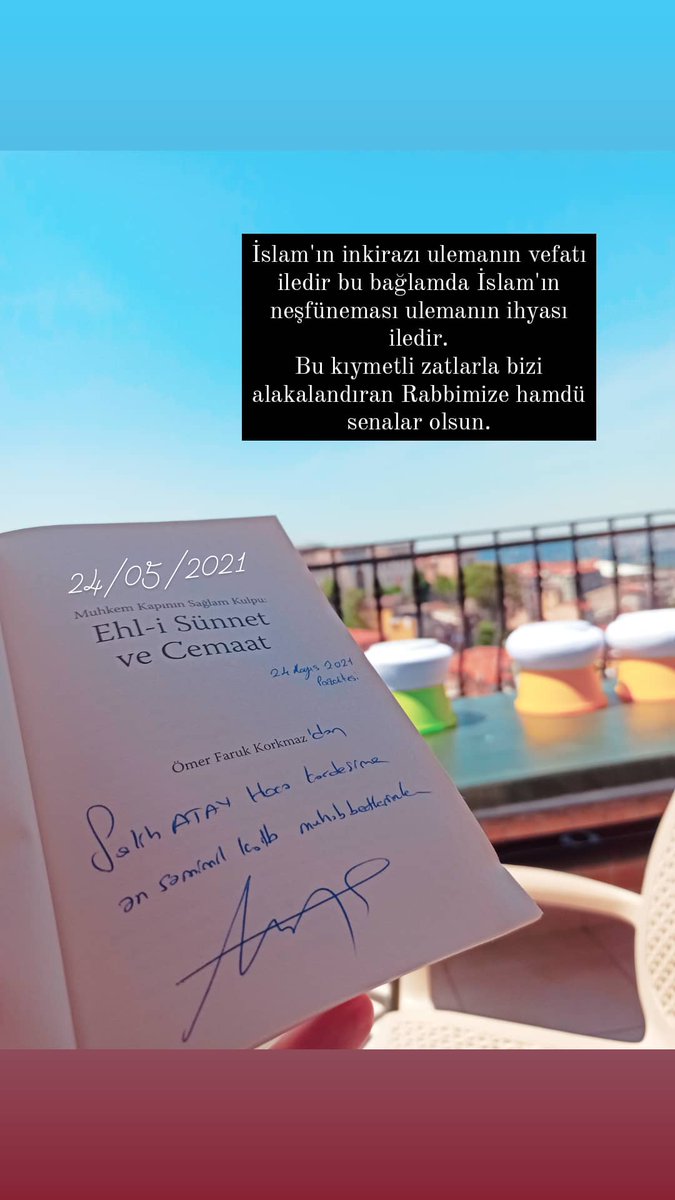 İslam'ın inkirazı ulemanın vefatı
iledir bu bağlamda İslam'ın
neşfüneması ulemanın ihyası
iledir.
Bu kıymetli zatlarla bizi
alakalandıran Rabbimize hamdü
senalar olsun.
24/05/2021
Muhkem Kapının Sağlam Kulpu:
Ehl-i Sünnet
ve Cemaat
24 Mayıs 2021
Ömer Faruk Korkmaz'dan
Salih ATAY Hoca kardeşime
en samimi kalb muhabbetlerimle